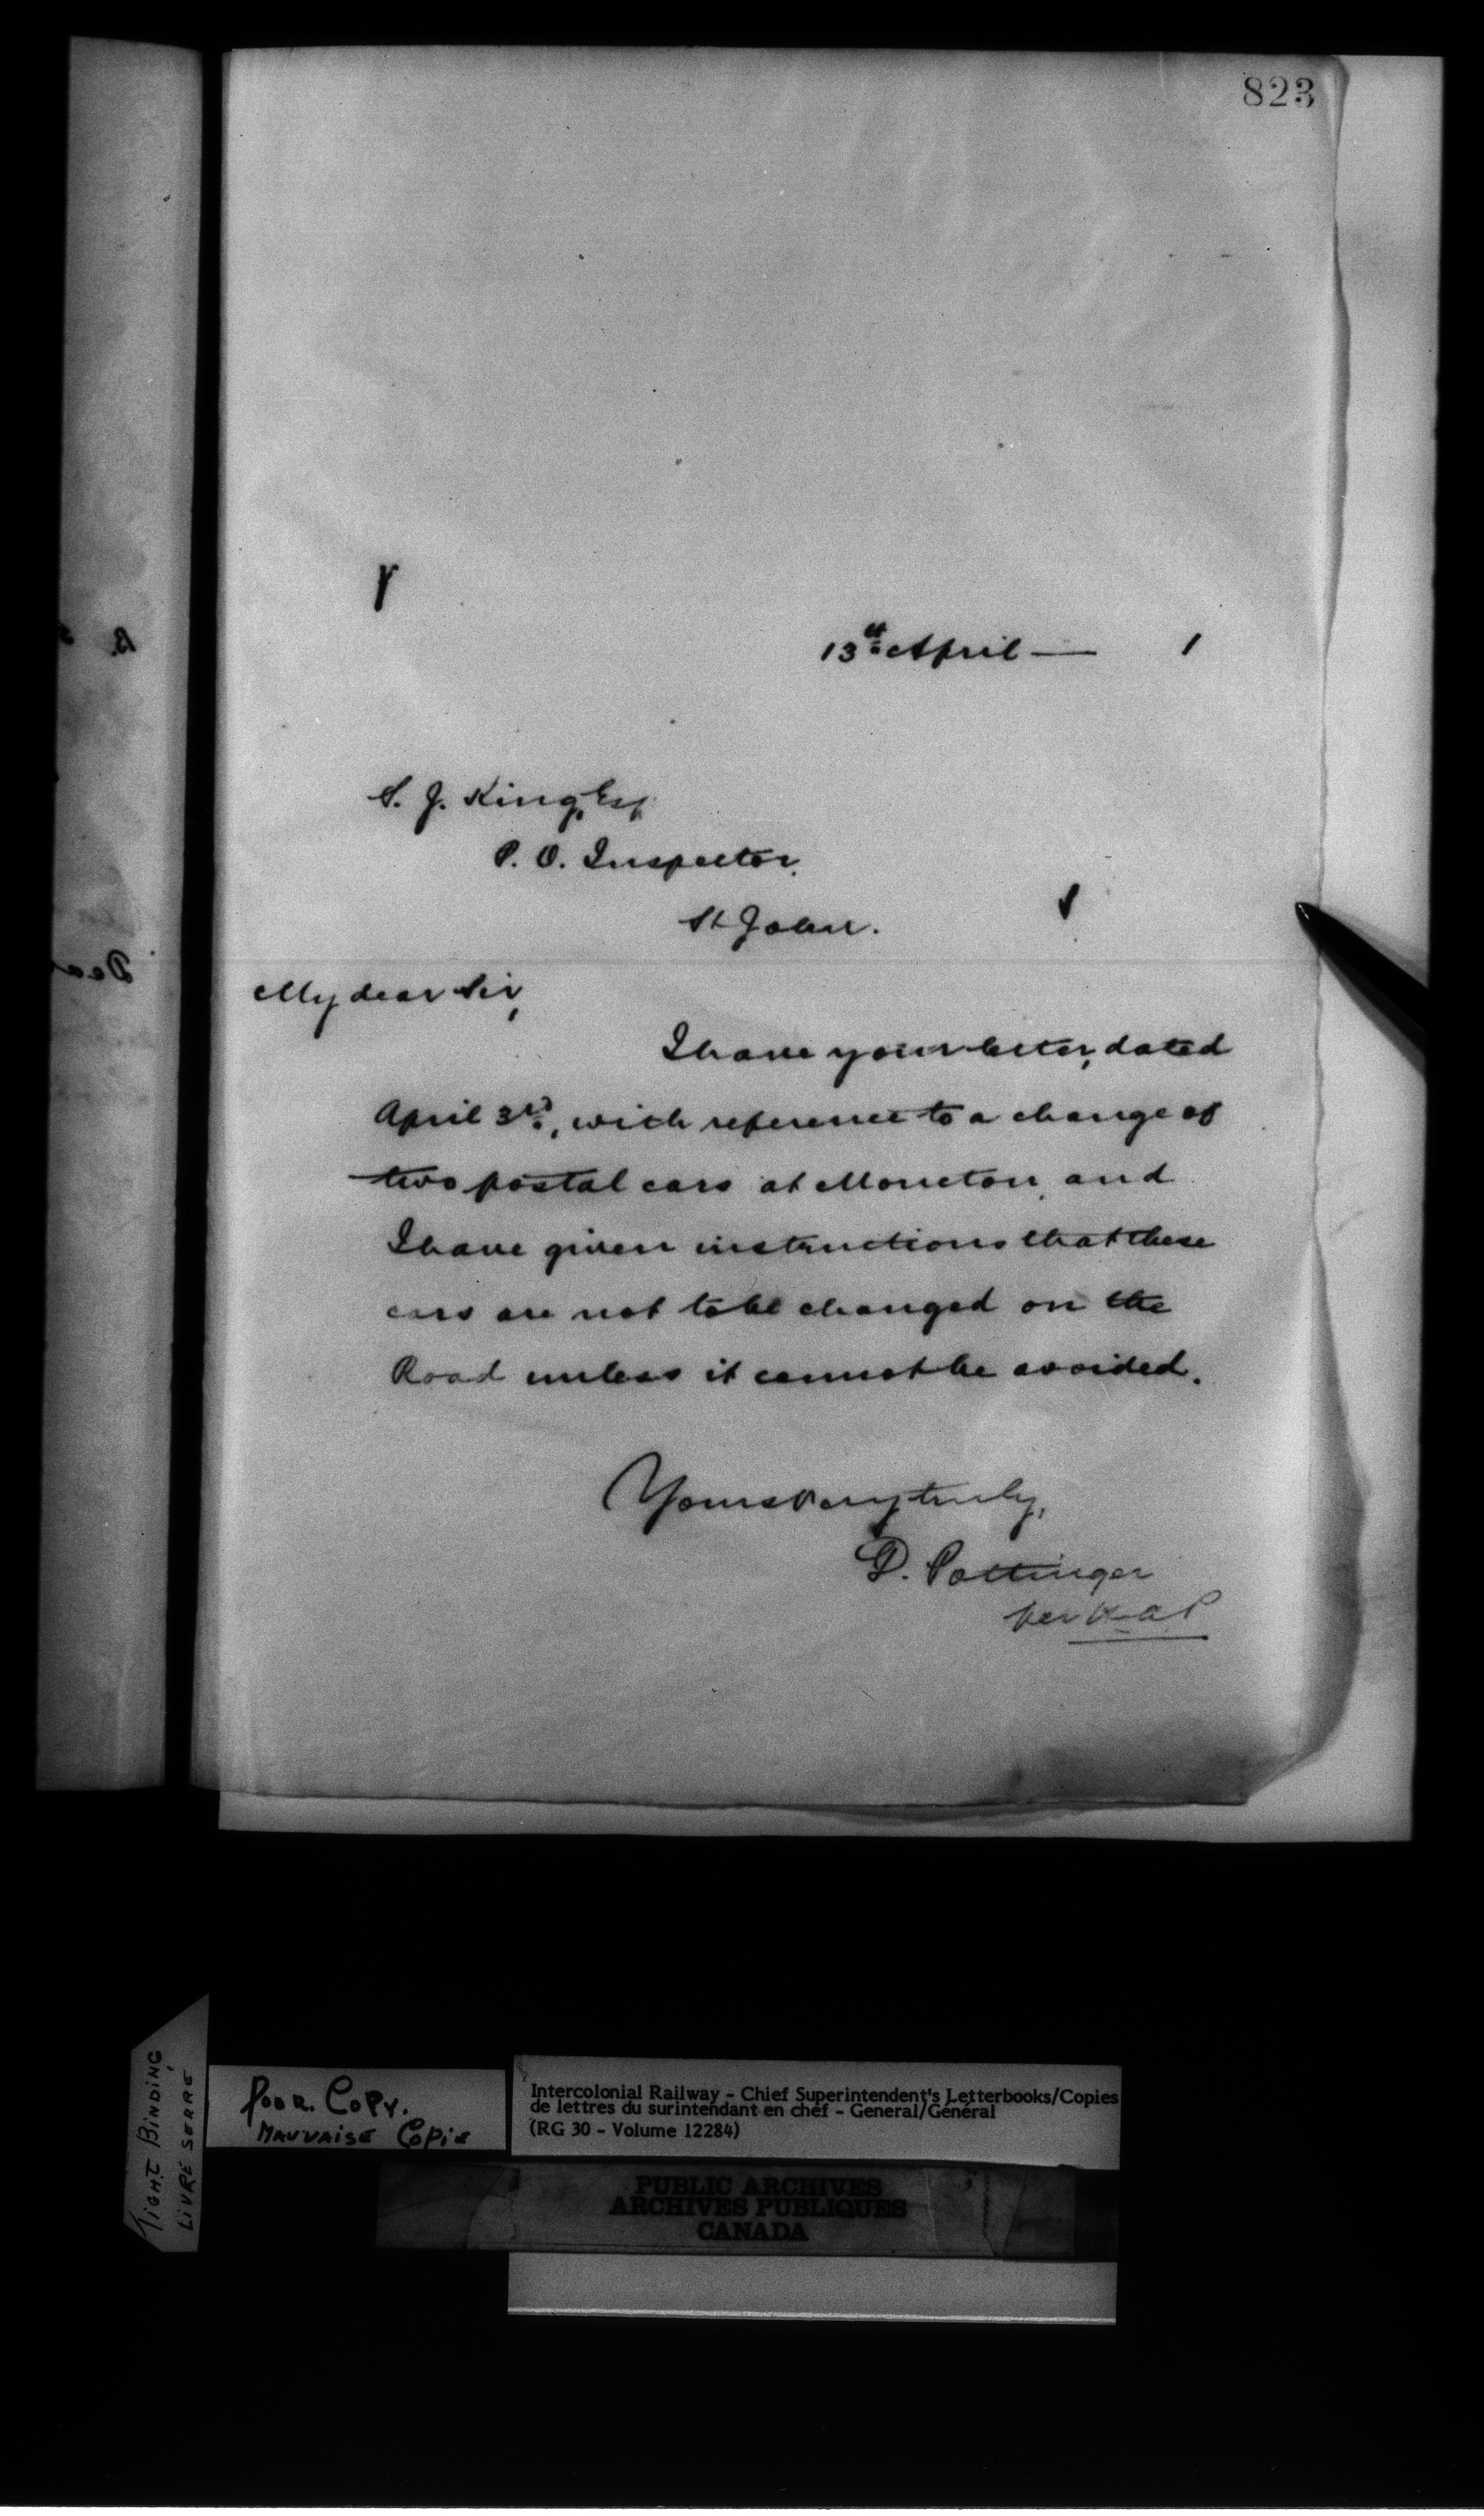 823
13th April — 1
S. J. King, Esq
P. O. Inspector,
St John.
My dear Sir,
I have your letter, dated
April 3rd, with reference to a change of
two postal cars at Moncton, and
I have given instructions that these
cars are not to be changed on the
Road unless it cannot be avoided.
Yours very truly,
D. Pottinger
per
Poor Copy.
Mauvaise Copie
Tight Binding,
Livre serré
Intercolonial Railway - Chief Superintendent's Letterbooks/Copies
de lettres du surintendant en chef - General/Général
(RG 30 - Volume 12284)
PUBLIC ARCHIVES
ARCHIVES PUBLIQUES
CANADA